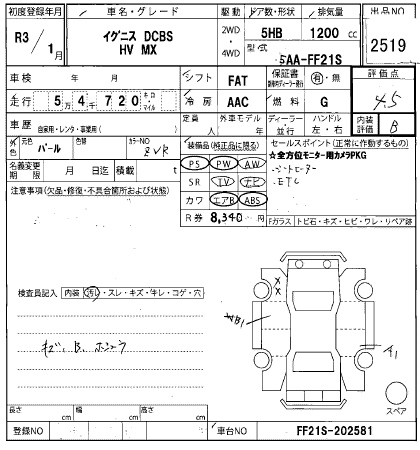 初度登録年月
車名・グレード
駆動
ドア数・形状
排気量
出品NO
R3/1月
イグニス DCBS
HV MX
2WD
・
4WD
5HB
1200 cc
型式
5AA-FF21S
2519
車検 年 月
シフト FAT
保証書
有・無
評価点
4.5
走行 5万4千720
キロ・マイル
冷房 AAC
燃料 G
車歴
自家用・レンタ・事業用( )
定員 人
外車モデル 年
ディーラー
並行
ハンドル
左・右
内装
評価
B
外色
元色 パール
色替
カラーNO ZVR
装備品(純正品に限る)
セールスポイント(正常に作動するもの)
名義変更
期限 月 日迄
積載 t
PS PW AW
★全方位モニター用カメラPKG
・シートヒーター
・ETC
注意事項(欠品・修復・不具合箇所および状態)
SR TV ナビ
カワ エアB ABS
R券 8,340 円
Fガラス トビ石・キズ・ヒビ・ワレ・リペア跡
検査員記入
内装 汚レ・スレ・キズ・キレ・コゲ・穴
キズ、B、ホシュウ
B1
A1
スペア
長さ cm
幅 cm
高さ cm
登録NO
車台NO
FF21S-202581